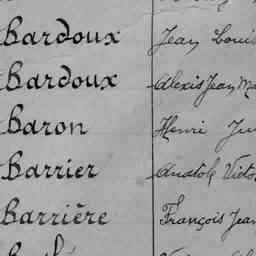 Bardoux Jean Louis
Bardoux Alexis Jean Ma
Baron Henri Ju
Barrier Anatole Victo
Barrière François Jean